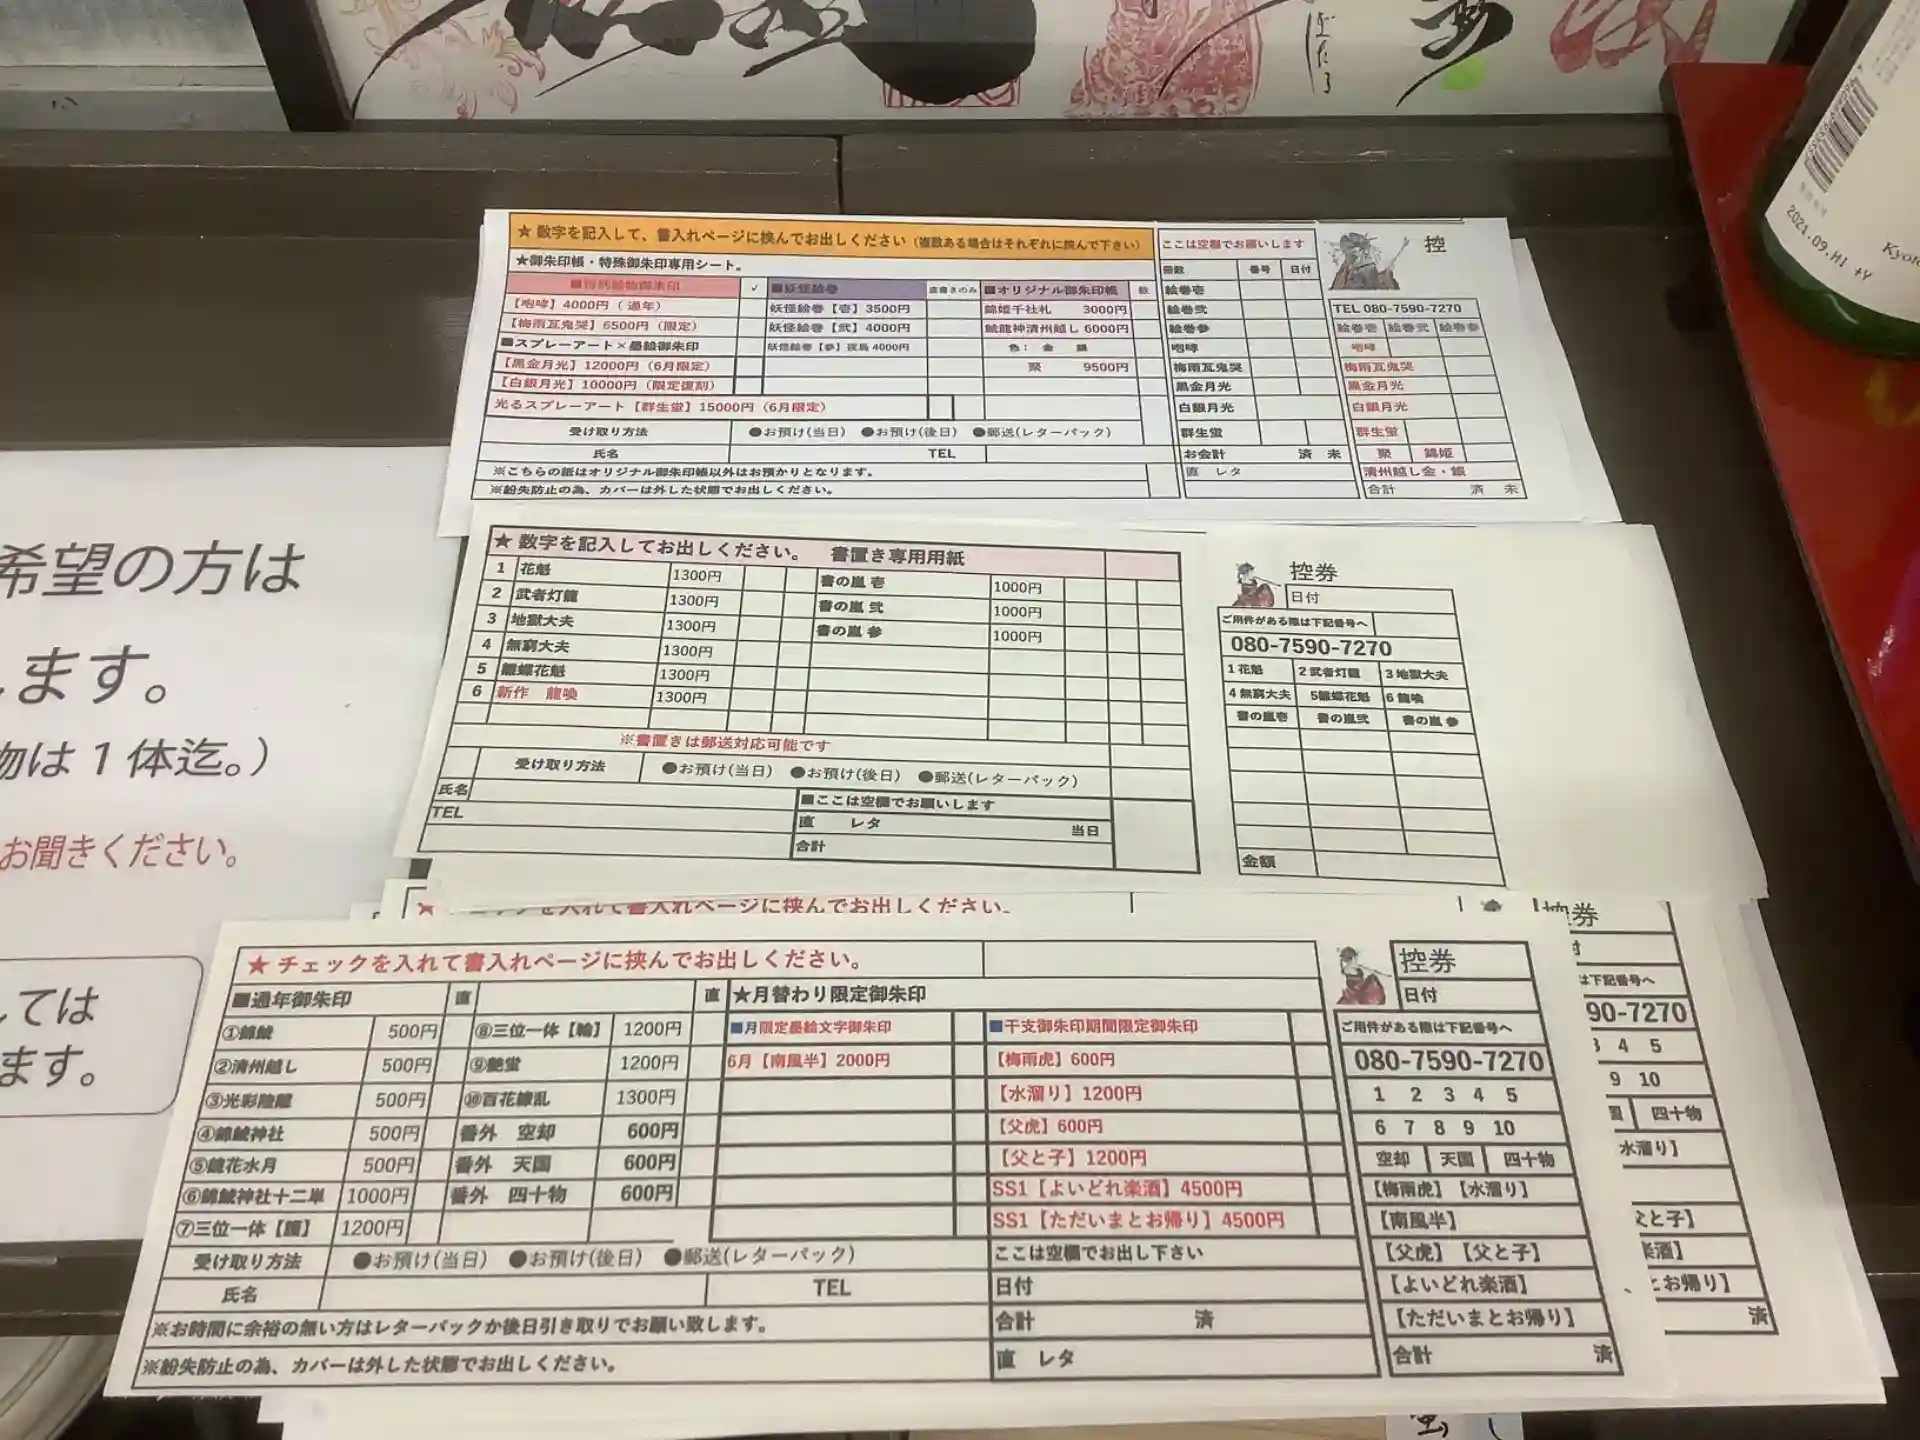 ★ 数字を記入して、書入れページに挟んでお出しください（複数ある場合はそれぞれに挟んで下さい）
★御朱印帳・特殊御朱印専用シート。
✓ ■妖怪絵巻 直書きのみ ■オリジナル御朱印帳 数
【咆哮】4000円（ 通年） 妖怪絵巻【壱】3500円 錦姫千社札 3000円
【梅雨瓦鬼哭】6500円（限定） 妖怪絵巻【弐】4000円 鯱龍神清州越し 6000円
■スプレーアート×墨絵御朱印 妖怪絵巻【参】夜烏 4000円 色： 金 銀
【黒金月光】12000円（6月限定） 聚 9500円
【白銀月光】10000円（限定復刻）
光るスプレーアート【群生蛍】15000円（6月限定）
受け取り方法 ●お預け(当日) ●お預け(後日) ●郵送(レターパック)
氏名 TEL
※こちらの紙はオリジナル御朱印帳以外はお預かりとなります。
※紛失防止の為、カバーは外した状態でお出しください。
ここは空欄でお願いします
冊数 番号 日付
絵巻壱
絵巻弐
絵巻参
咆哮
梅雨瓦鬼哭
黒金月光
白銀月光
群生蛍
お会計 済 未
直 レタ
控
TEL 080-7590-7270
絵巻壱 絵巻弐 絵巻参
咆哮
梅雨瓦鬼哭
黒金月光
白銀月光
群生蛍
聚 錦姫
清州越し金・銀
合計 済 未
★ 数字を記入してお出しください。 書置き専用用紙
1 花魁 1300円 書の嵐 壱 1000円
2 武者灯籠 1300円 書の嵐 弐 1000円
3 地獄大夫 1300円 書の嵐 参 1000円
4 無窮大夫 1300円
5 龍蝶花魁 1300円
6 新作 龍喚 1300円
※書置きは郵送対応可能です
受け取り方法 ●お預け(当日) ●お預け(後日) ●郵送(レターパック)
氏名 ■ここは空欄でお願いします
TEL 直 レタ 当日
合計
控券
日付
ご用件がある際は下記番号へ
080-7590-7270
1 花魁 2 武者灯籠 3 地獄大夫
4 無窮大夫 5龍蝶花魁 6 龍喚
書の嵐壱 書の嵐弐 書の嵐 参
金額
★ チェックを入れて書入れページに挟んでお出しください。
■通年御朱印 直 直 ★月替わり限定御朱印
①錦鯱 500円 ⑧三位一体【輪】 1200円 ■月限定墨絵文字御朱印 ■干支御朱印期間限定御朱印
②清州越し 500円 ⑨艶蛍 1200円 6月【南風半】2000円 【梅雨虎】600円
③光彩陸離 500円 ⑩百花繚乱 1300円 【水溜り】1200円
④錦鯱神社 500円 番外 空却 600円 【父虎】600円
⑤鏡花水月 500円 番外 天国 600円 【父と子】1200円
⑥錦鯱神社十二単 1000円 番外 四十物 600円 SS1【よいどれ楽酒】4500円
⑦三位一体 1200円 SS1【ただいまとお帰り】4500円
受け取り方法 ●お預け(当日) ●お預け(後日) ●郵送(レターパック) ここは空欄でお出し下さい
氏名 TEL 日付
※お時間に余裕の無い方はレターパックか後日引き取りでお願い致します。 合計 済
※紛失防止の為、カバーは外した状態でお出しください。 直 レタ
控券
日付
ご用件がある際は下記番号へ
080-7590-7270
1 2 3 4 5
6 7 8 9 10
空却 天国 四十物
【梅雨虎】【水溜り】
【南風半】
【父虎】【父と子】
【よいどれ楽酒】
【ただいまとお帰り】
合計 済
控券
は下記番号へ
90-7270
4 5
9 10
四十物
水溜り】
父と子】
楽酒】
とお帰り】
済
希望の方は
します。
物は 1 体迄。）
お聞きください。
しては
ます。
2021.09.
Kyoto